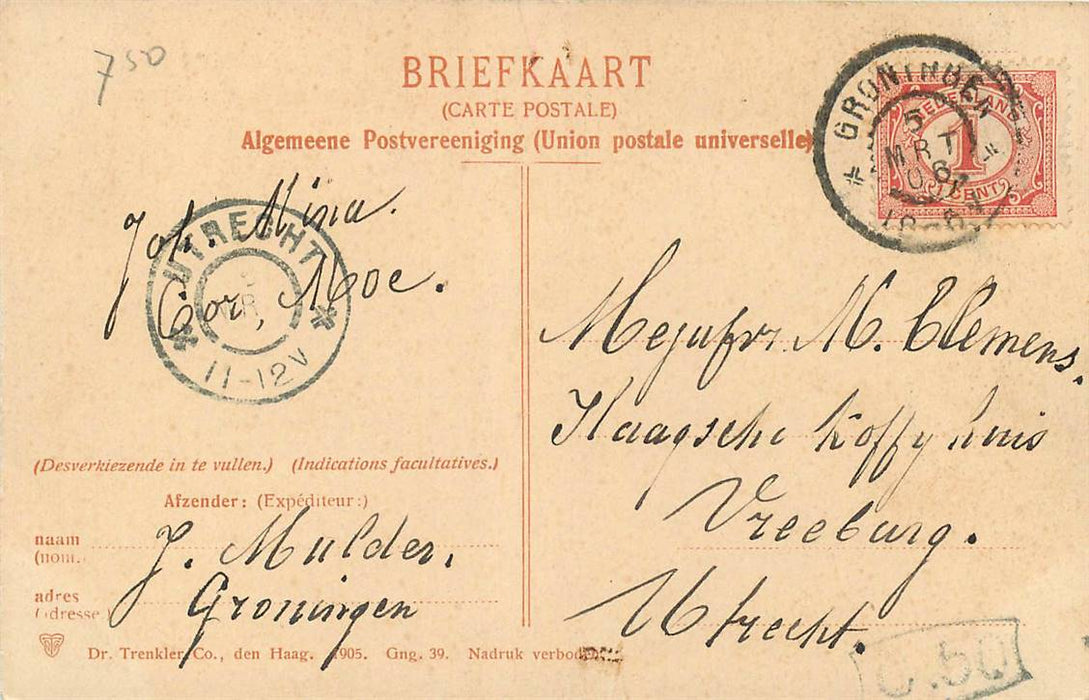 750
BRIEFKAART
(CARTE POSTALE)
Algemeene Postvereeniging (Union postale universelle)
GRONINGEN
5
MRT
06
NEDERLAND
1
CENT
Joh. Mina.
Cor, Moe.
UTRECHT
11-12V
Mejufvr. M. Clemens.
Haagsche koffyhuis
Vreeburg.
Utrecht.
(Desverkiezende in te vullen.) (Indications facultatives.)
Afzender: (Expéditeur:)
naam
(nom.)
J. Mulder.
adres
(adresse)
Groningen
Dr. Trenkler Co., den Haag. 1905. Gng. 39. Nadruk verboden.
0.50